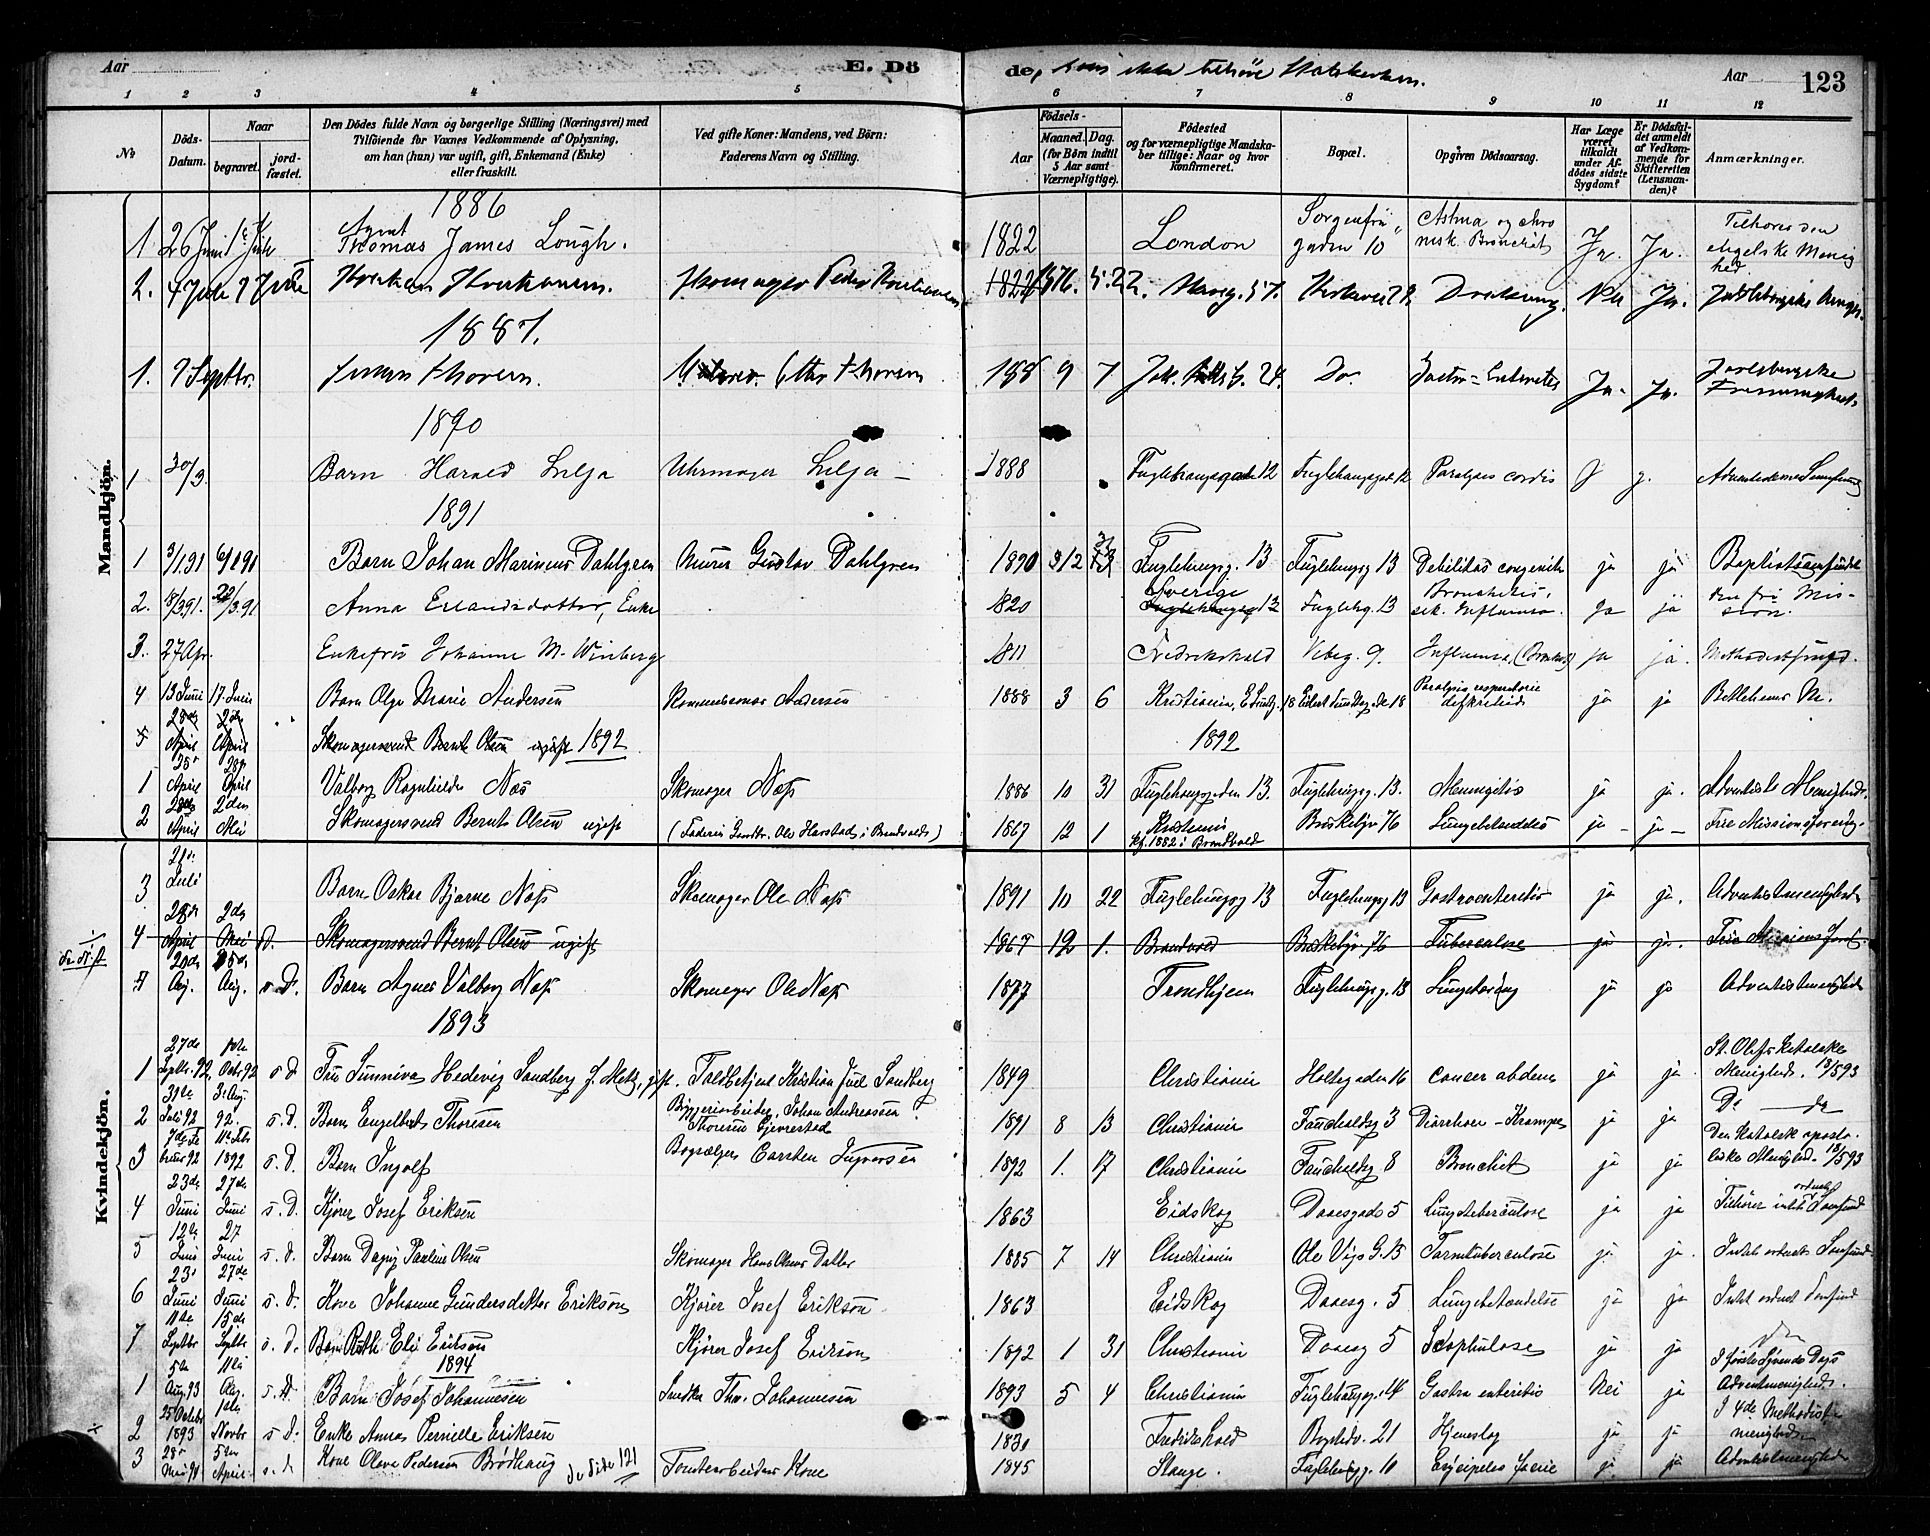 Aar E. Dö de, som ikke tilhøre Statskirken. Aar 123
1 2 3 4 5 6 7 8 9 10 11 12
No
Döds-Datum.
Naar
begravet.
jord-fæstet.
Den Dödes fulde Navn og borgerlige Stilling (Næringsvei) med
Tilföiende for Voxnes Vedkommende af Oplysning,
om han (hun) var ugift, gift, Enkemand (Enke)
eller fraskilt.
Ved gifte Koner: Mandens, ved Börn:
Faderens Navn og Stilling.
Födsels-
Aar
Maaned. Dag.
(for Börn indtil
5 Aar samt
Værnepligtige).
Födested
og for værnepligtige Mandska-
ber tillige: Naar og hvor
konfirmeret.
Bopæl.
Opgiven Dödsaarsag.
Har Læge
været
tilkaldt
under Af-
dödes sidste
Sygdom?
Er Dödsfal-
det anmeldt
af Vedkom-
mende for
Skifteretten
(Lensman-
den)?
Anmærkninger.
Mandkjön.
1886
1 26 Juni 1 Juli Agent Thomas James Lough. 1822 London Sorgenfri gaden 10 Astma og chronisk Bronchit Ja. Ja. Tilhører den engelske Menighed
2. 4 Juli 7 Juli Skomager 1822 5. 22. Drukning. Nei Ja.
1887.
1. 9 Septbr. Thoresen. Otto Thoresen 188 9 7 Do. Gastro-Enterites Ja. Ja. Jarlsbergske Frimenighed
1890
1 30/3 Barn Harald Lilja Uhrmager Lilja 1888 Fuglehaugsgade 12 Fuglehaugsgade 12 Paralysis cordis J J.
1891
1 3/1 91 6/1 91 Barn Johan Marinius Dahlgren Murer Gustav Dahlgren 1890 Fuglehaugsg. 13 Fuglehaugsg 13 Debilitas congenita ja ja Baptistsamfundet
2. 18/3 91. 22/3 91 Anna Erlandsdatter, Enke 1820 Sverige Fuglehaugsg 13 Fuglehg. 13 Bronchitis, sek. Influensa. Ja ja den fri Mission.
3. 27 Apr. Enkefru Johanne M. Winberg 1811 Fredrikshald Vibeg. 9. Influensa, ja ja. Methodistsamfd.
4 13 Juni 17 Juni Barn Olga Marie Andersen Andersen 1888 3 6 Kristiania, Eilert Sundtsgade 18 Paralysis respiratorie difkritisk ja ja Bethlehems M.
5 28de April 2de April Skomagersvend Bernt Olsen ugift 1892 1892
1 25 April 28de April Valborg Ragnhilda Næs Skomager Næss 1886 10 31 Fuglehauggaden 13. Fuglehaugsg. 13. Meningitis ja ja. Adventiste Menighed.
2 28de April 2den Mai Skomagersvend Bernt Olsen ugift (Faderen Gaardbr. Ole Harstad i Brandvold) 1867 12 1 Kf. 1882 i Brandvold Briskebyv 76 Lungebetændelse ja ja Frie Missionsforening.
Kvindekjön.
3 21de Juli Barn Oskar Bjarne Næss Skomager Ole Næss 1891 10 22 Fuglehaugsg 13 Fuglehaugsg 13 Gastroenteritis ja ja. Adventistmenighed
4 28de April 2de Mai s.D. Skomagersvend Bernt Olsen ugift 1867 12 1. Brandvold Briskebyv 76 Tuberculose ja ja. Frie Missions Foren.
20de Aug. 25de Aug. s.D. Barn Agnes Valborg Næss Skomager Ole Næss 1877 Trondhjem Fuglehaugsg. 13 Lungetæring ja ja Adventistmenighed
1893
1 27de Septbr. 92. 1ste Octbr 92 s D Fru Sunniva Hedevig Sandberg f. Metz, gift. Toldbetjent Kristian Juel Sandberg 1849 Christiania Holtegaden 16 cancer abdom ja ja St. Olafs Katolske Menighed. 13/5 93
2 31te Juli 92 3 Aug. 92. s.D. Barn Engelbert Thoresen Bryggeriarbeider, Johan Andreassen Thoresen Gjevrestad 1891 8 13 Christiania Faucheldsg 3 Diarrhoe - Krampe ja ja Do do
3 7de Febrar 92 11te Feb 1892 s.D. Barn Ingolf Bogsælger Carsten Ingversen 1892 1. 17 Christiania Faucheldsg. 8 Bronchit ja ja Den Katolsk apostoliske Menighed. 13/5 93
4 23de Juni 27de Juni s.D. Kjører Josef Eriksen 1863 Eidskog Daaesgade 5 Lungetuberculose ja ja Tilhører intet ordnet Samfund
5 12te Juni 27 Juni s.D. Barn Dagny Pauline Olsen Skomager Hans Olsens Datter 1885 7 14 Christiania Ole Vigs G. 15 Tarmtuberculose ja ja. Intet ordnet Samfund
6 23 Juni 27de Juni s.D. Kone Johanne Gundersdatter Eriksen Kjører Josef Eriksen 1863 Eidskog Daaesg. 5 Lungebetændelse ja ja Intet ordnet Samfund
7 11te Septbr 15de Septbr s.D. Barn Ruth Eli Eriksen Kjører Josef Eriksen 1892 1 31 Christiania Daaesg 5 Scrophulose ja ja
1894
1 5te Aug. 93 11te Aug. s.D. Barn Josef Johannesen Snedker Thr. Johannesen 1893 5 4 Christiania Fuglehaugg. 14 Gastro enteritis Nei ja I første Syvende Dags Adventmenighed.
2 25 Octobr 1893 1ste Novbr s D. Enke Anna Pernille Eriksen 1830 Fredrikshald Bogstadv. 21 Hjerneslag ja ja I 4de Methodistmenighed.
3 28 Mai 94 5te April s.d. Kone Olava Pedersen Brødhaug Se Side 121 Tomtearbeider Kone 1845 Stange. Fuglehaugg. 10 Erysipelas faciei ja ja Adventistmenighed